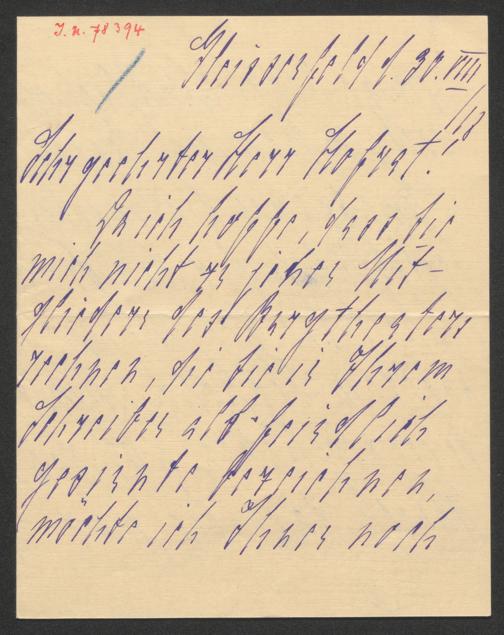 I. N. 78394
d. 30. VIII
18
Sehr geehrter Herr Hofrat!
Da ich hoffe, dass Sie
mich nicht zu jenen Mit-
gliedern des Burgtheaters
rechnen, die Sie in Ihrem
Schreiben als feindlich
gesinnte bezeichnen,
möchte ich Ihnen noch